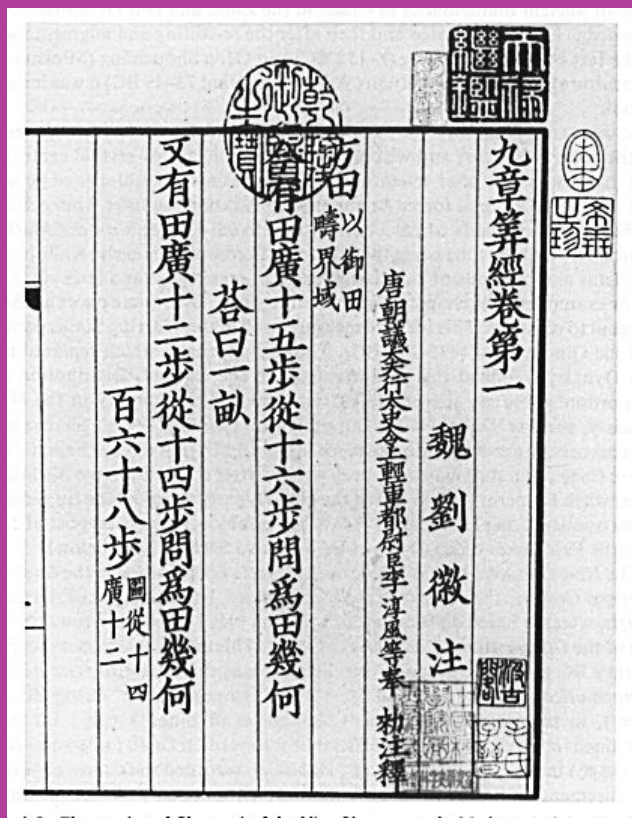 天祿繼鑑
乾隆御覽之寶
宋本
希世之珍
九章筭經卷第一
魏劉徽注
唐朝議大夫行太史令上輕車都尉臣李淳風等奉 勑注釋
方田以御田
疇界域
今有田廣十五步從十六步問爲田幾何
荅曰一畝
又有田廣十二步從十四步問爲田幾何
百六十八步圖從十四
廣十二
汲古閣